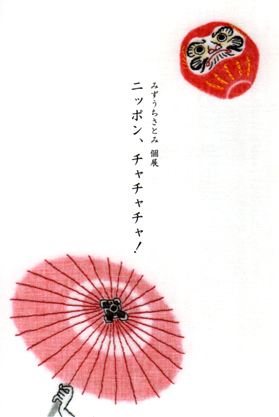 みずうちさとみ 個展
ニッポン、チャチャチャ！